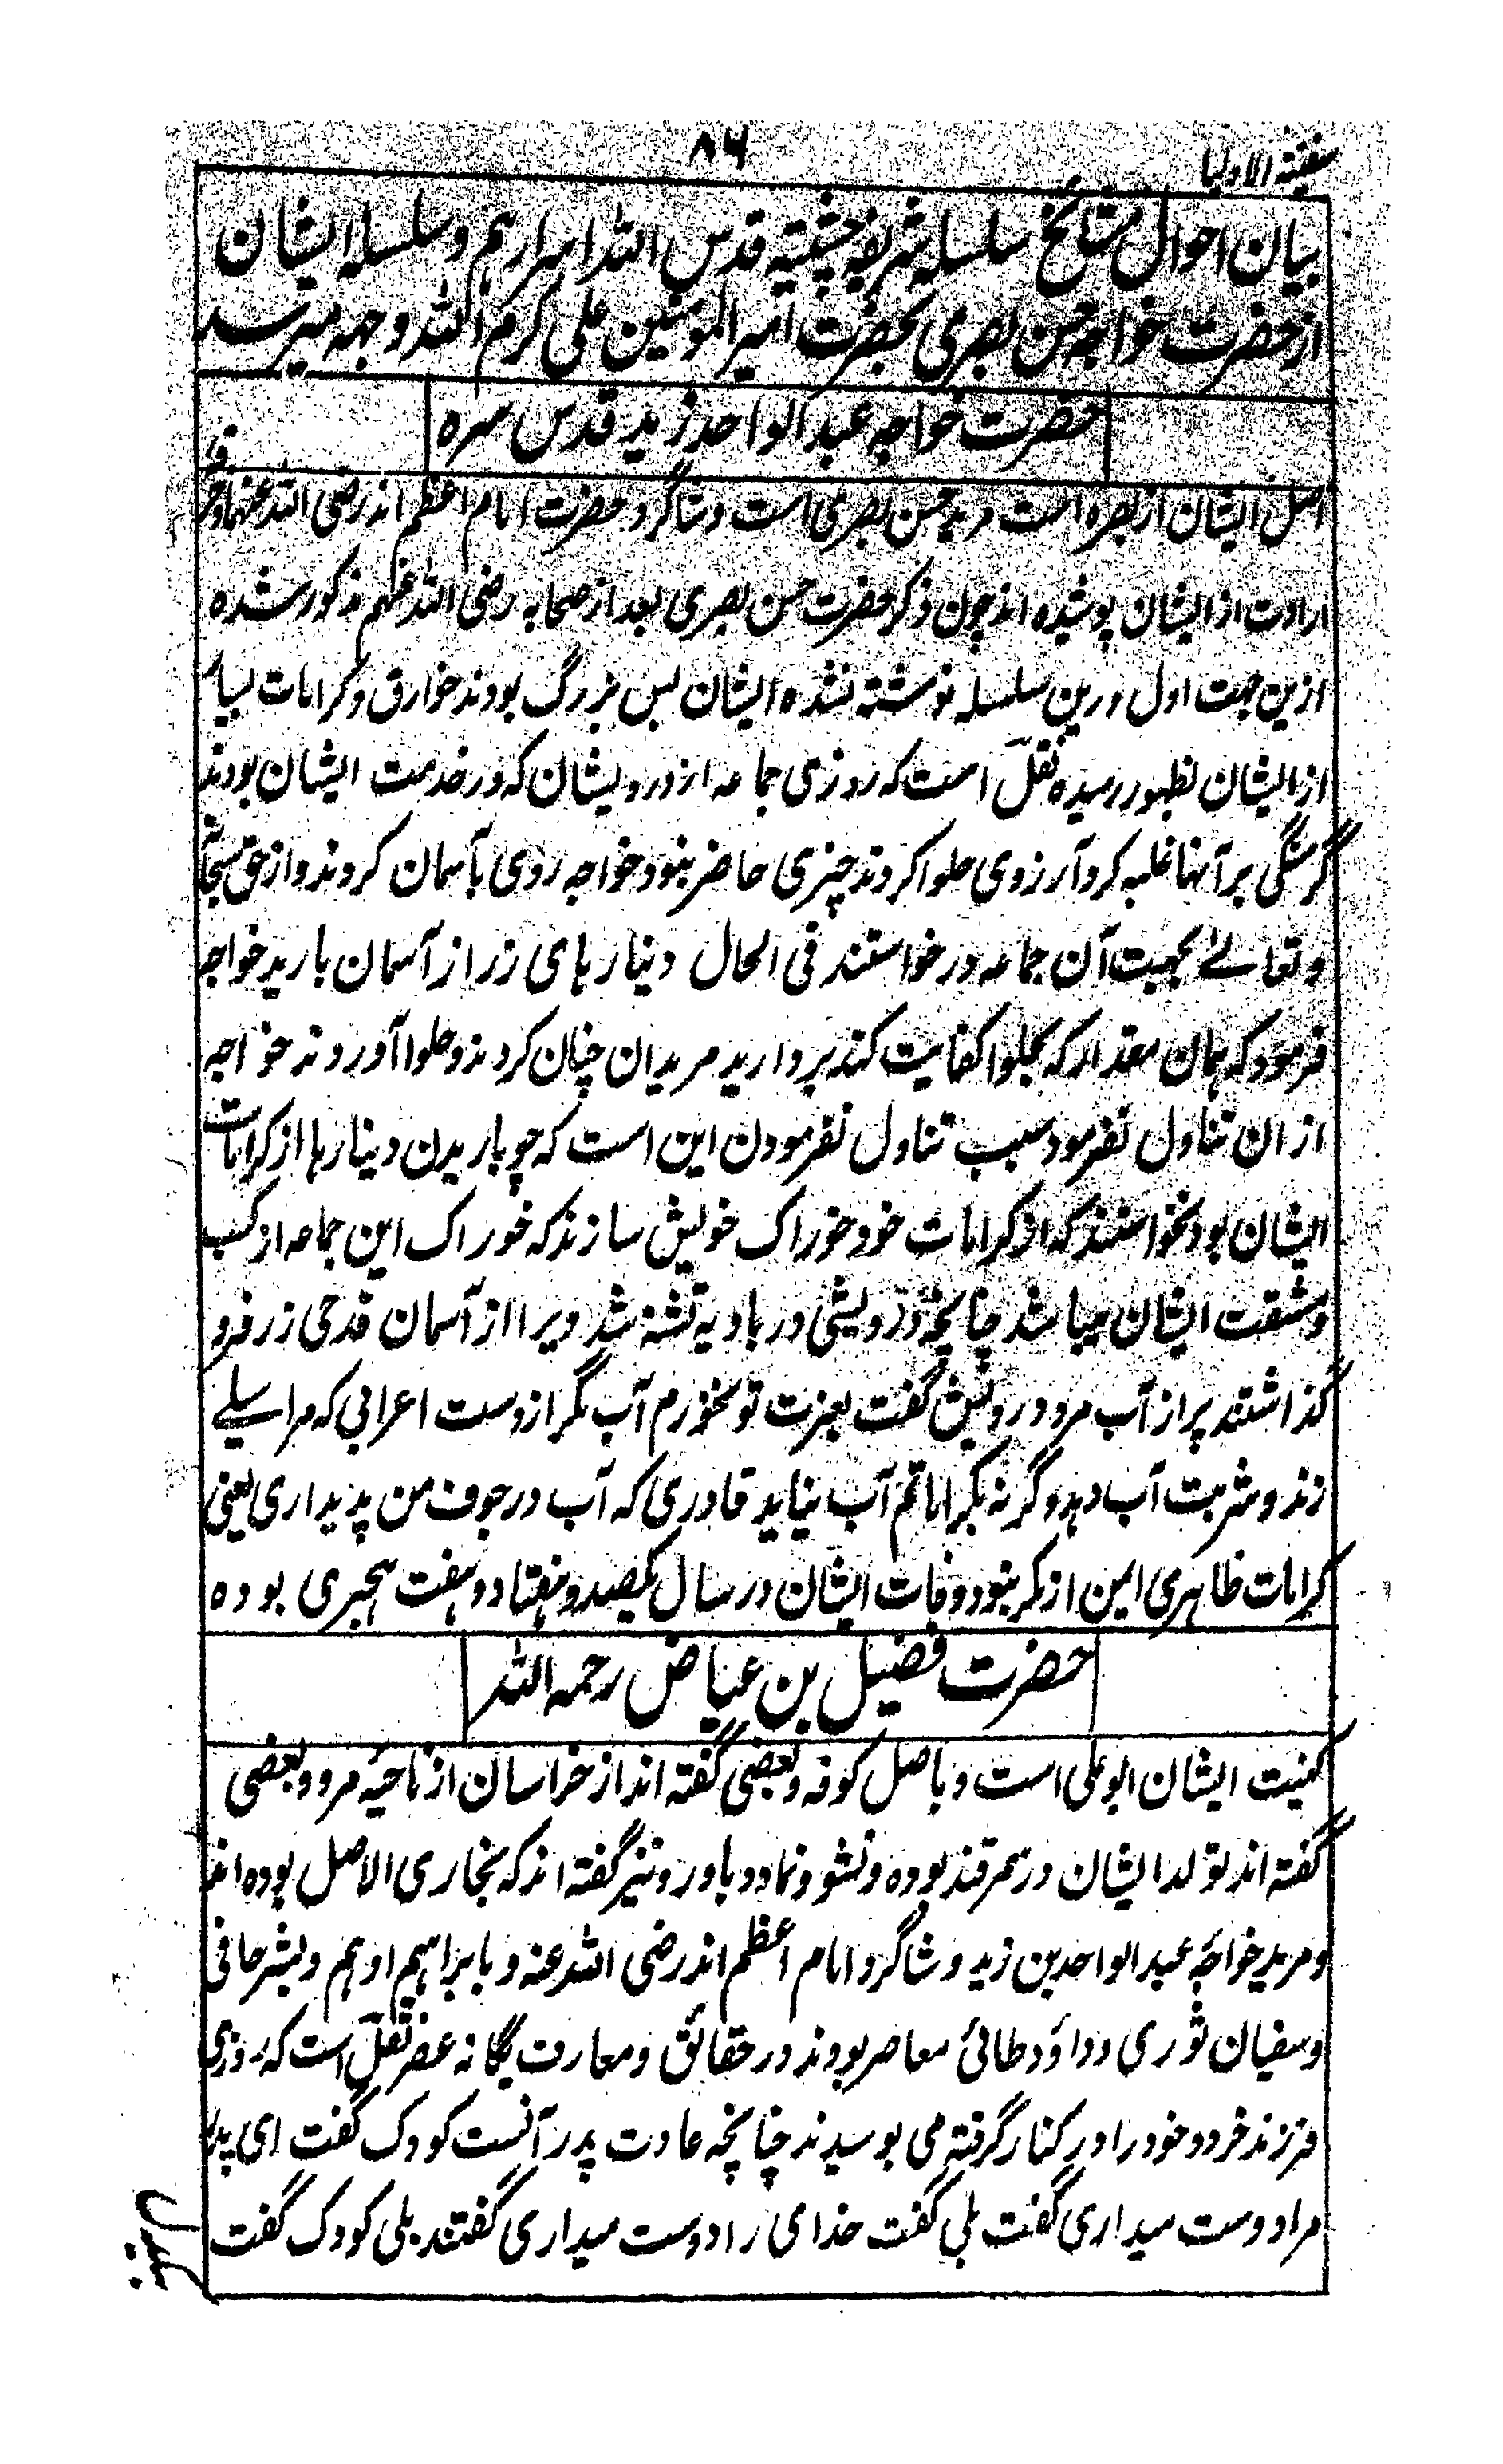 سفینة الاولیا
۸۶
بیان احوال مشائخ سلسله شریفه چشتیه قدس الله اسرارهم و سلسله ایشان
از حضرت خواجه حسن بصری بحضرت امیر المؤمنین علی کرم الله وجهه میرسد
حضرت خواجه عبدالواحد زید قدس سره
اصل ایشان از بصره است مرید حسن بصری است و شاگرد حضرت امام اعظم اند رضی الله عنهما و خرقه
ارادت از ایشان پوشیده اند چون ذکر حضرت حسن بصری بعد از صحابه رضی الله عنهم مذکور شده
ازین جهت اول درین سلسله نوشته نشده ایشان بس بزرگ بودند خوارق و کرامات بسیار
از ایشان بظهور رسیده نقل است که روزی جماعه از درویشان که در خدمت ایشان بودند
گرسنگی بر آنها غلبه کرد آرزوی حلوا کردند چیزی حاضر نبود خواجه روی بآسمان کردند و از حق سبحانه
و تعالے بجهیت آن جماعه درخواستند فی الحال دینارهای زر از آسمان بارید خواجه
فرمود که همان مقدار که بحلوا کفایت کند بردارید مریدان چنان کردند و حلوا آوردند خواجه
از ان تناول نفرمود سبب تناول نفرمودن این است که چو باریدن دینارها از کرامات
ایشان بود نخواستند که از کرامات خود خوراک خویش سازند که خوراک این جماعه از کسب
و مشقت ایشان میباشد چنانچه درویشی در بادیه تشنه شد ویرا از آسمان قدحی زر فرو
گذاشتند پر از آب سرد درویش گفت بعزت تو نخورم آب مگر از دست اعرابی که مرا سیلے
زند و شربت آب دهد وگرنه بکراماتم آب نباید قادری که آب در جوف من پدید اری یعنی
کرامات ظاهری ایمن از مکر نبود وفات ایشان در سال یکصد و هفتاد و هفت هجری بوده
حضرت فضیل بن عیاض رحمه الله
کنیت ایشان ابو علی است و باصل کوفه و بعضی گفته اند از خراسان از ناحیۀ مرو و بعضی
گفته اند تولد ایشان در سمرقند بوده و نشو و نما در باورد و نیز گفته اند که بخاری الاصل بوده اند
و مرید خواجۀ عبدالواحد بن زید و شاگرد امام اعظم اند رضی الله عنه و با براهیم ادهم و بشر حافی
و سفیان ثوری و داؤد طائی معاصر بودند در حقائق و معارف یگانه عصر نقل است که روزی
فرزند خرد خود را در کنار گرفته می بوسیدند چنانچه عادت پدر آنست کودک گفت ای پدر
مرا دوست میداری گفت بلی گفت خدای را دوست میداری گفتند بلی کودک گفت